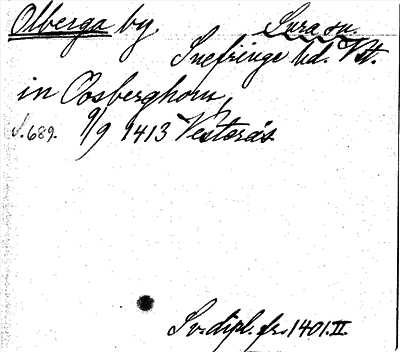 Olberga by. Sura sn.
Snefringe hd. Vstm.
in Oosberghom,
S. 689. 9/9 1413 Vesterås.
Sv. dipl. fr. 1401. II.